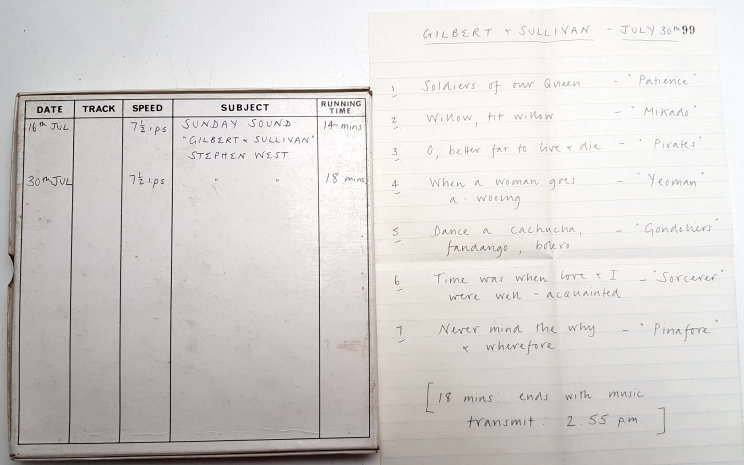 DATE TRACK SPEED SUBJECT RUNNING TIME
16th JUL 7½ ips SUNDAY SOUND 14 mins
"GILBERT & SULLIVAN"
STEPHEN WEST
30th JUL 7½ ips " " 18 mins
GILBERT & SULLIVAN - JULY 30th 99
1 Soldiers of our Queen - "Patience"
2 Willow, tit willow - "Mikado"
3 O, better far to live & die - "Pirates"
4 When a woman goes - "Yeoman"
a-wooing
5 Dance a cachucha, - "Gondoliers"
fandango, bolero
6 Time was when love & I - "Sorcerer"
were well-acquainted
7 Never mind the why - "Pinafore"
& wherefore
[18 mins: ends with music
transmit: 2.55 p.m.]